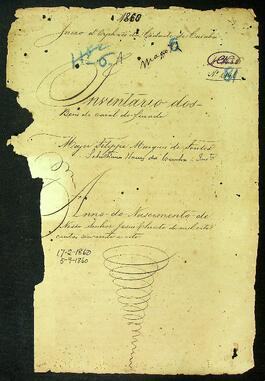 1860
Juizo d'Orphãos da Cidade de Cuiabá
1182
6
A
Maço 6
Nº
Inventário dos
Bens do casal do finado
Major Filippe Marques de Fontes
Sebastiana Nunes da Cunha
Anno do Nascimento de
Nosso Senhor Jesus Christo de mil oito
centos sessenta e oito
17-2-1860
5-7-1860